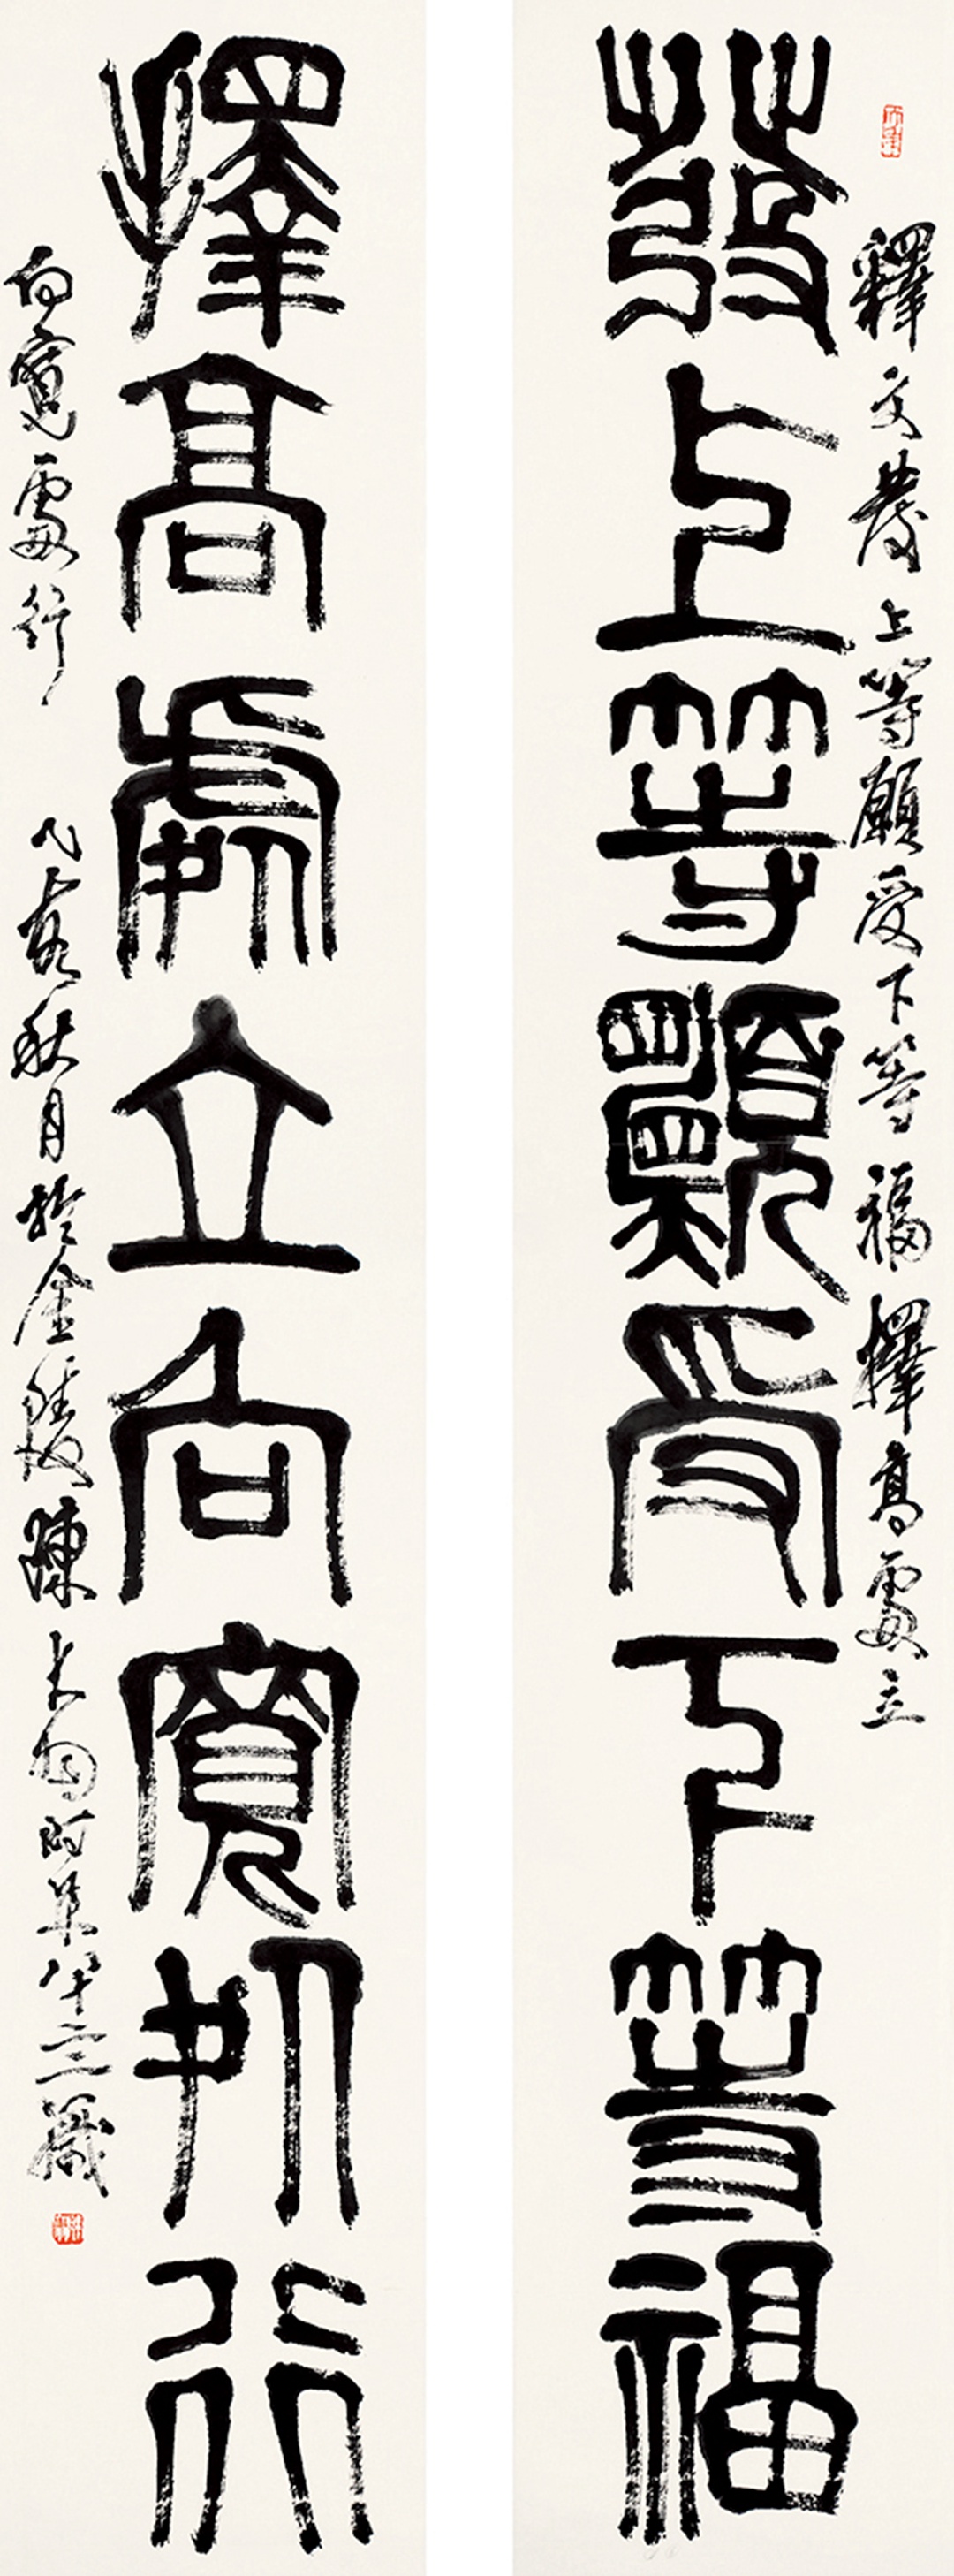 釋文發上等願受下等福擇高處立
發上等願受下等福
擇高處立向寬處行
向寬處行 秋月於金陵陳大羽時年八十三歲